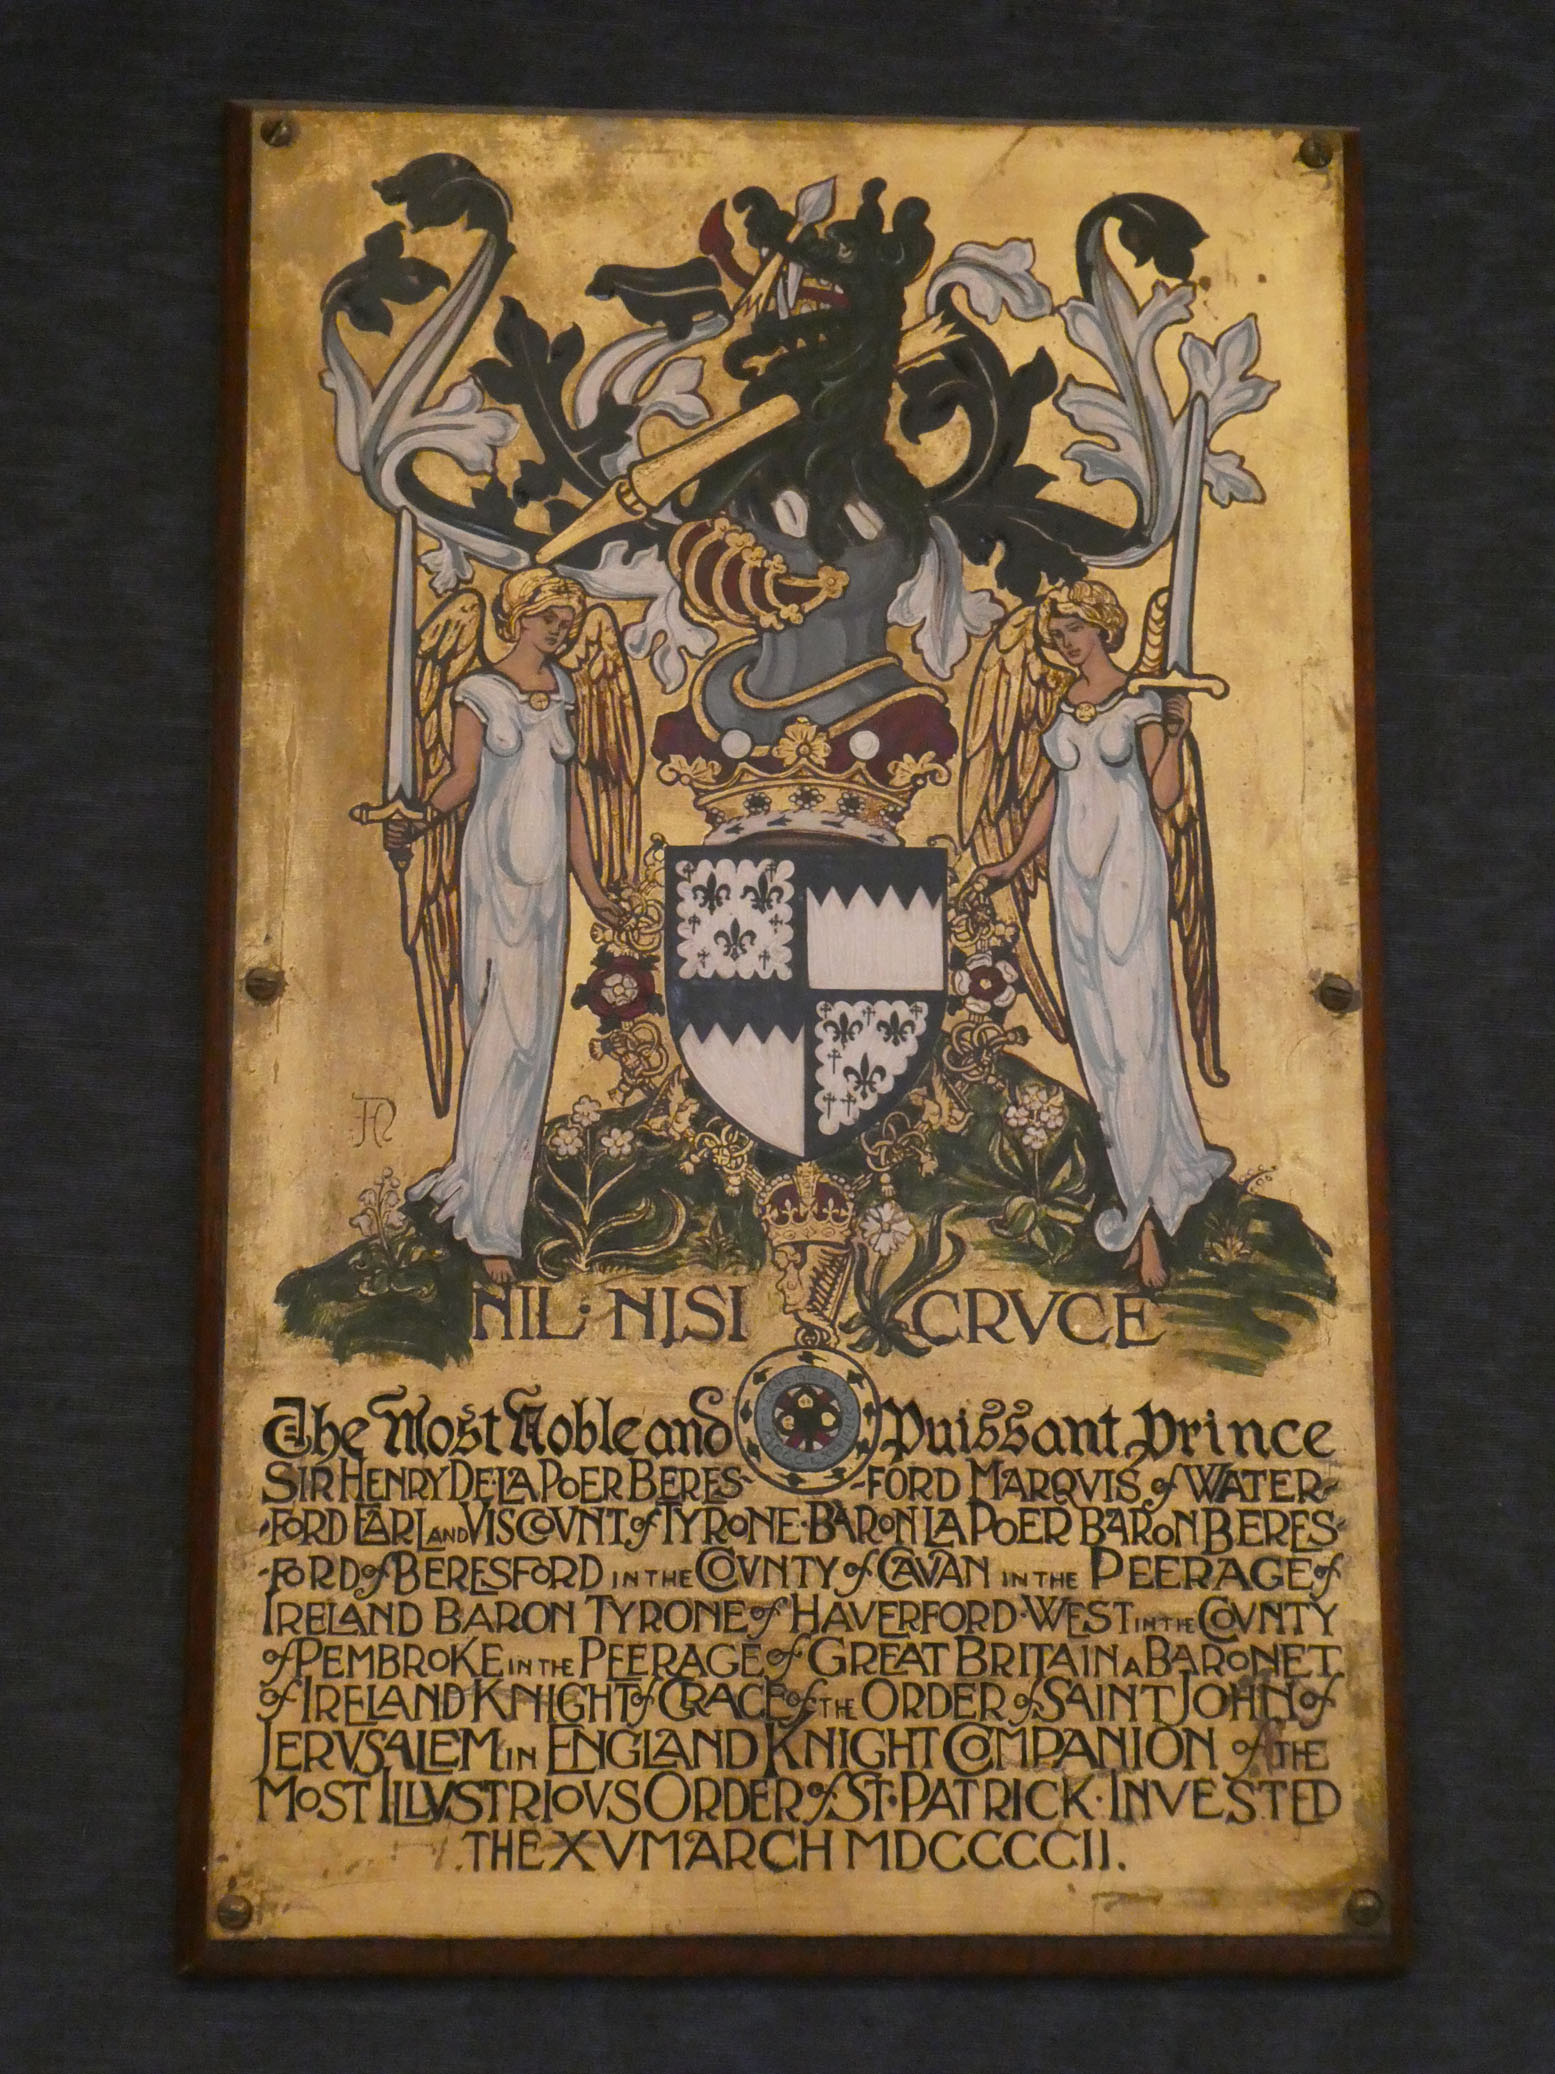 NIL · NISI CRVCE
The Most Noble and Puissant Prince
SIR HENRY DE·LA POER BERES- -FORD MARQVIS of WATER-
-FORD EARL AND VISCOVNT of TYRONE·BARON LA POER BARON BERES-
-FORD of BERESFORD IN THE COVNTY of CAVAN IN THE PEERAGE of
IRELAND BARON TYRONE of HAVERFORD·WEST IN THE COVNTY
of PEMBROKE IN THE PEERAGE of GREAT BRITAIN A BARONET
of IRELAND KNIGHT of GRACE of THE ORDER of SAINT JOHN of
JERVSALEM IN ENGLAND KNIGHT COMPANION of THE
MOST ILLVSTRIOVS ORDER of ST·PATRICK·INVESTED
THE XV MARCH MDCCCCII.